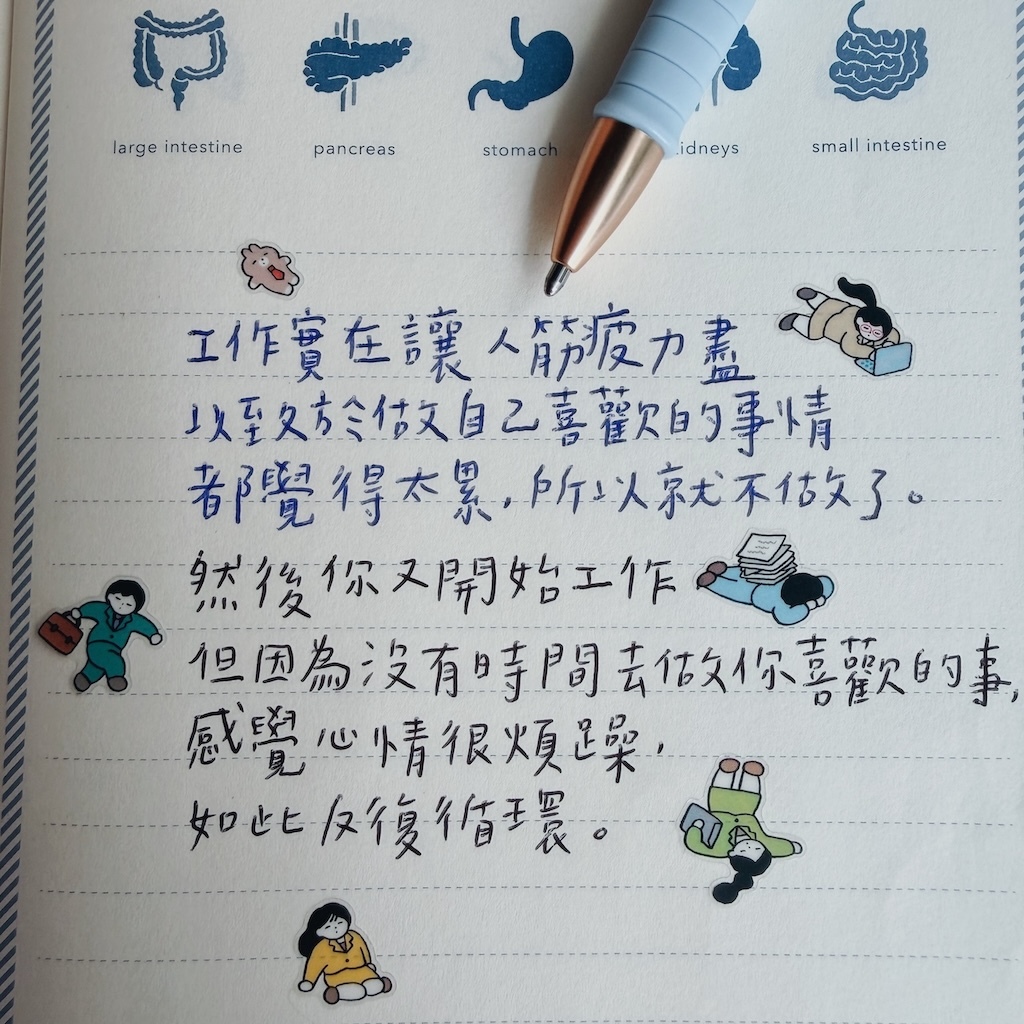 large intestine pancreas stomach kidneys small intestine
工作實在讓人筋疲力盡
以至於於做自己喜歡的事情
都覺得太累,所以就不做了。
然後你又開始工作
但因為沒有時間去做你喜歡的事,
感覺心情很煩躁,
如此反復循環。